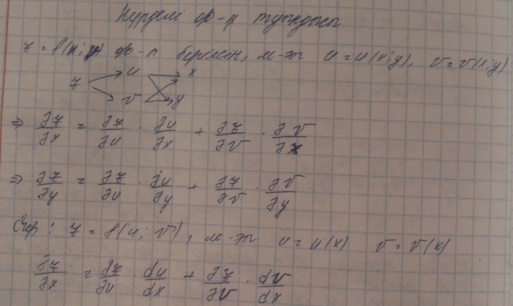 Күрделі ф-я туындысы
z = f(u;v) ф-я берілген, м-ғы u = u(x;y), v = v(x;y)
z u v x y
⇒ ∂z/∂x = ∂z/∂u · ∂u/∂x + ∂z/∂v · ∂v/∂x
⇒ ∂z/∂y = ∂z/∂u · ∂u/∂y + ∂z/∂v · ∂v/∂y
z = f(u; v), м-ғы u = u(x) v = v(x)
∂z/∂x = ∂z/∂u · du/dx + ∂z/∂v · dv/dx